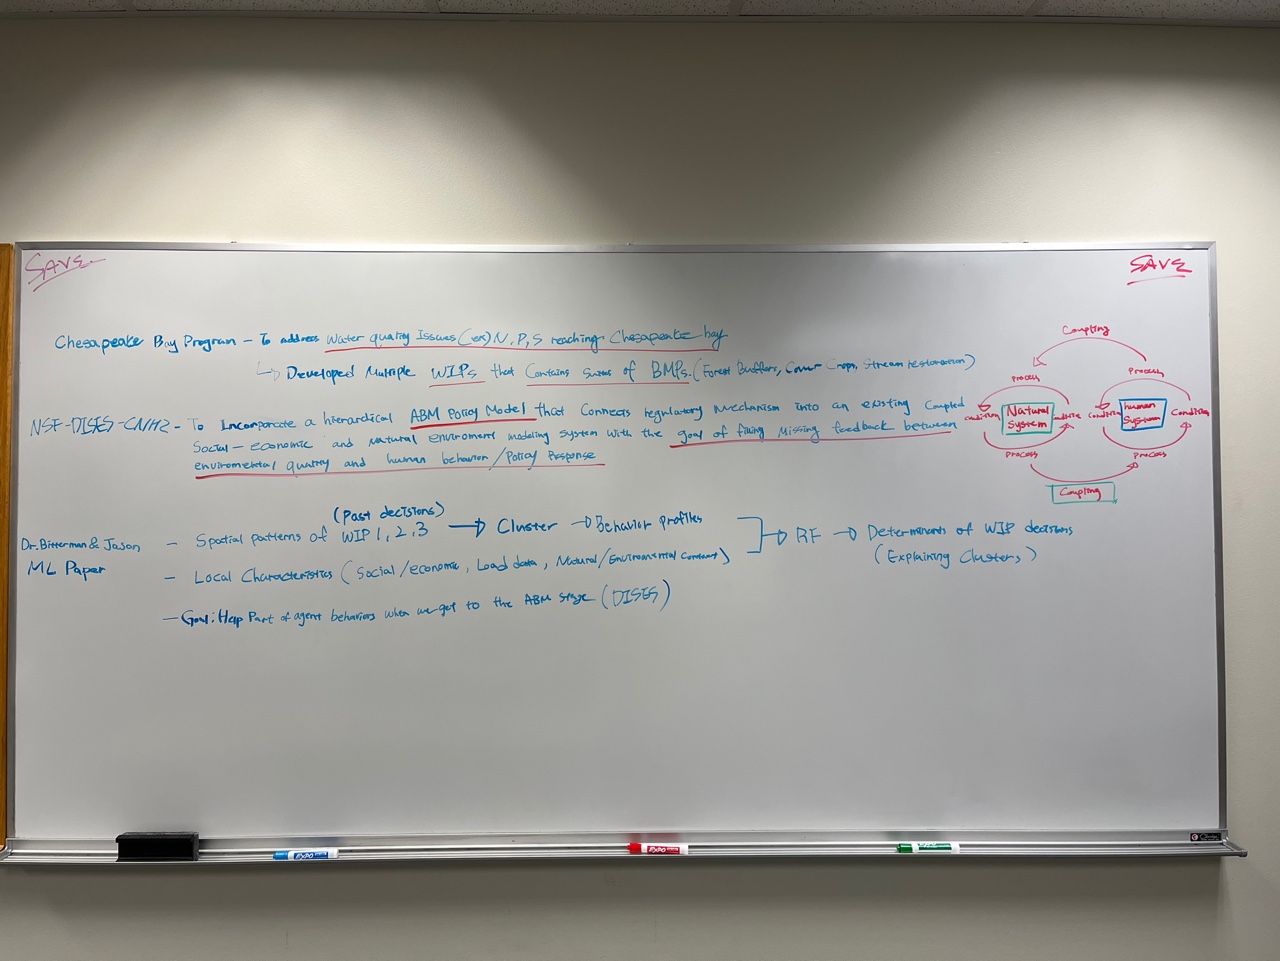 SAVE
SAVE
Chesapeake Bay Program - To address Water quality Issues (ex) N, P, S reaching Chesapeake bay
↳ Developed Multiple WIPs that Contains suites of BMPs. (Forest Buffers, Cover Crops, Stream restoration)
NSF-DISES-CNH2 - To Incorporate a hierardical ABM Policy Model that Connects regulatory Mechanism into an existing Coupled
Social-economic and Natural enviroment modeling system with the goal of filling Missing feedback between
enviromental quality and human behavior/Policy Response
Coupling
Process
Process
Condition
Natural
System
Condition
human
System
Condition
Process
Process
Coupling
(Past decisions)
Dr. Bitterman & Jason
ML Paper
- Spatial patterns of WIP 1, 2, 3 → Cluster → Behavior profiles
- Local Characteristics (Social/economic, Load data, Natural/Environmental Constraint)
→ RF → Determinants of WIP decisions
(Explaining Clusters)
- Goal: Help Part of agent behaviors when we get to the ABM stage (DISES)
EXPO
EXPO